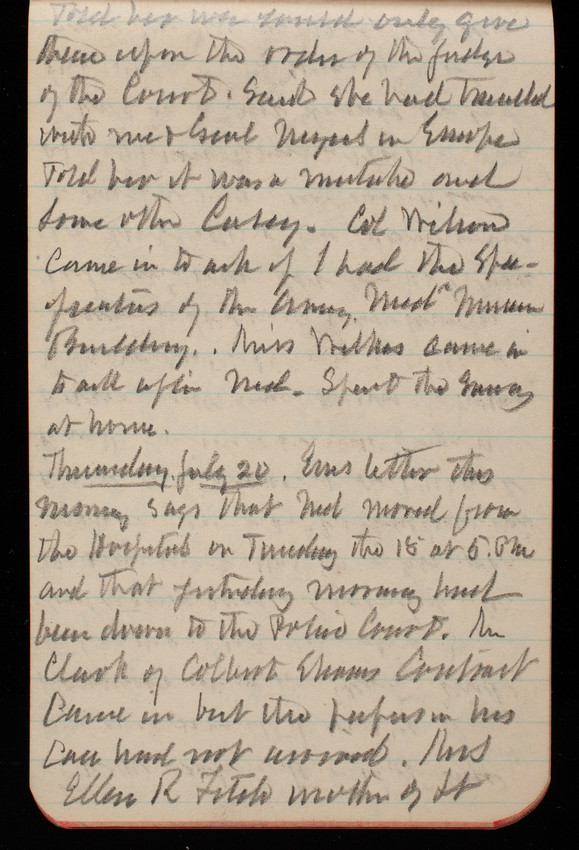 Told her we could only give
them upon the order of the Judge
of the Court. Said she had travelled
with me & Genl in Europe
Told her it was a mistake and
some other Casey. Col Wilson
came in to ask if I had the Spe-
of the Army Med Museum
Building. Miss Wilkes came in
to ask after Ned. Spent the
at home.
Thursday July 20. Ems letter this
morning says that Ned moved from
the Hospital on Tuesday the 18 at 5. P M
and that yesterday morning had
been down to the Police Court. Mr
Clark of Colbert Contract
Came in but the papers in his
Case had not arrived. Mrs
Ellen R Fitch mother of Lt